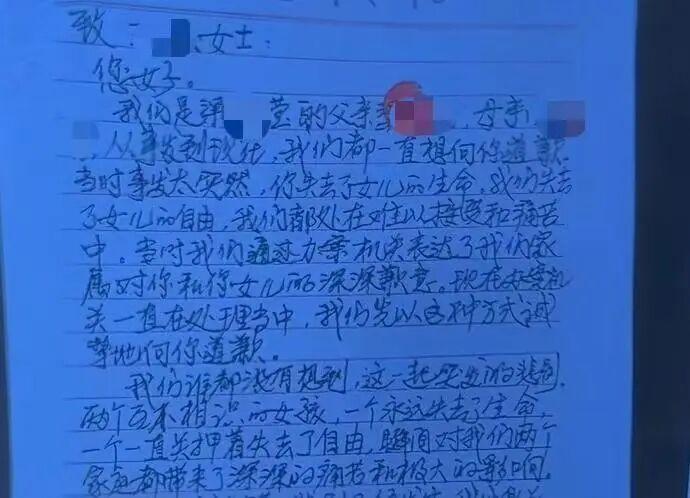 致：女士：
您好。
我们是梁莹的父亲梁，母亲
，从事发到现在，我们都一直想向你道歉
当时事发太突然，你失去了女儿的生命，我们失去
了女儿的自由，我们都处在难以接受和痛苦
中。当时我们通过办案机关表达了我们家
属对你和你女儿的深深歉意。现在办案机
关一直在处理当中，我们先以这种方式诚
挚地向你道歉。
我们谁都没有想到，这一起突发的悲剧，
两个互不相识的女孩，一个永远失去了生命，
一个一直关押着失去了自由，瞬间对我们两个
家庭都带来了深深的痛苦和极大的影响。